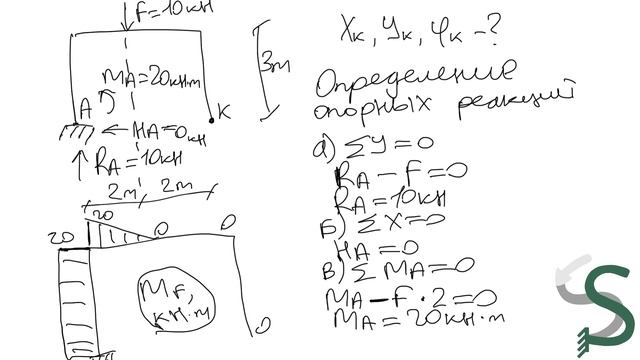 F=10кН
MA=20кН·м
A
K
3м
HA=0кН
RA=10кН
2м
2м
20
20
0
0
0
MF,
кН·м
Xк, Yк, φк -?
Определение
опорных реакций
а) ΣY=0
RA-F=0
RA=10кН
Б) ΣX=0
HA=0
В) ΣMA=0
MA-F·2=0
MA=20кН·м
S